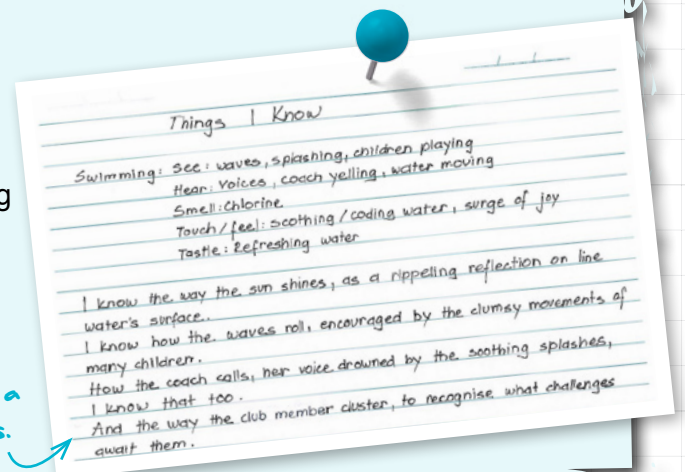 Things I Know
Swimming: See: waves, splashing, children playing
Hear: Voices, coach yelling, water moving
Smell: Chlorine
Touch/feel: soothing/coding water, surge of joy
Tastle: Refreshing water
I know the way the sun shines, as a rippeling reflection on line
water's surface..
I know how the waves roll, encouraged by the clumsy movements of
many children.
How the coach calls, her voice drowned by the soothing splashes,
I know that too.
And the way the club member cluster, to recognise what challenges
await them.
ng
a
s.